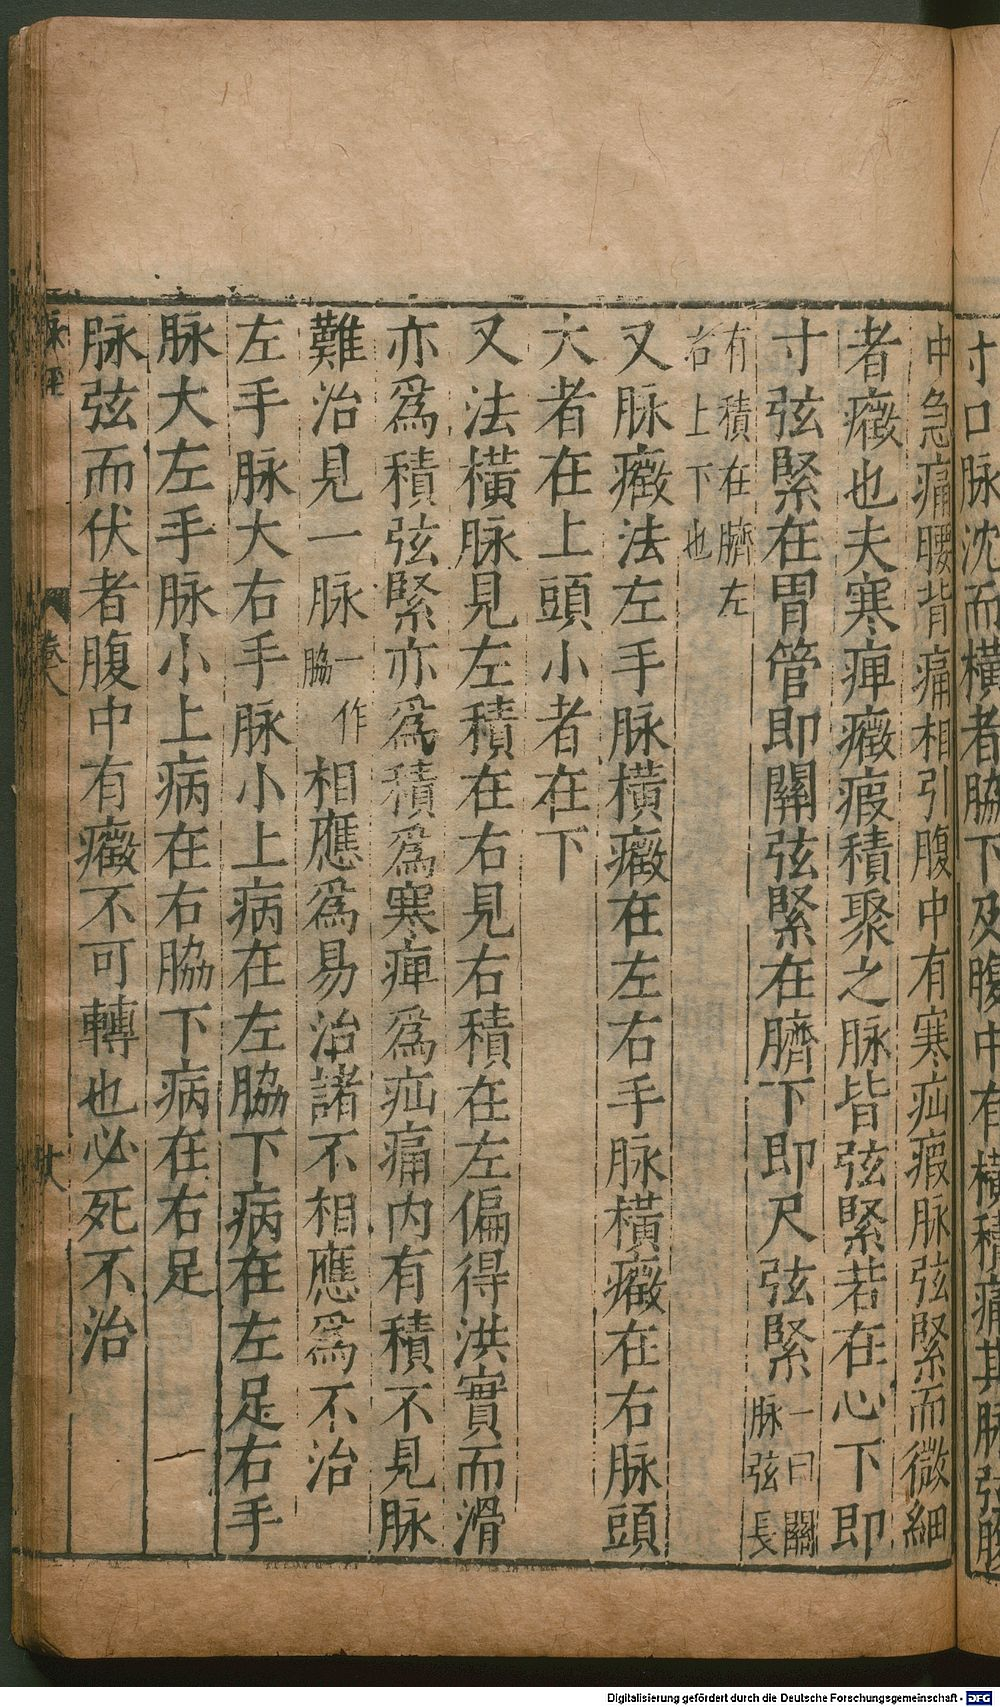 寸口脉沈而橫者脇下及腹中有橫積痛其脉弦腹
中急痛腰背痛相引腹中有寒疝瘕脉弦緊而微細
者癥也夫寒痺癥瘕積聚之脉皆弦緊若在心下即
寸弦緊在胃管即關弦緊在臍下即尺弦緊一曰關脉弦長
有積在臍左
右上下也
又脉癥法左手脉橫癥在左右手脉橫癥在右脉頭
大者在上頭小者在下
又法橫脉見左積在右見右積在左偏得洪實而滑
亦爲積弦緊亦爲積爲寒痺爲疝痛内有積不見脉
難治見一脉一作脇相應爲易治諸不相應爲不治
左手脉大右手脉小上病在左脇下病在左足右手
脉大左手脉小上病在右脇下病在右足
脉弦而伏者腹中有癥不可轉也必死不治
脉經
卷八
十八
Digitalisierung gefördert durch die Deutsche Forschungsgemeinschaft - DFG